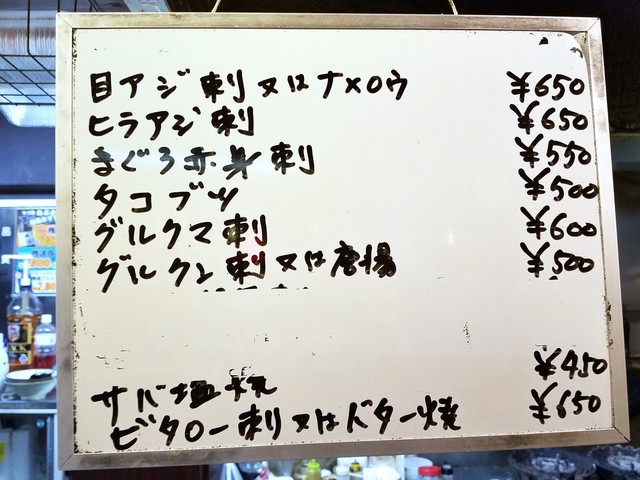 目アジ刺又はナメロウ ¥650
ヒラアジ刺 ¥650
まぐろ赤身刺 ¥550
タコブツ ¥500
グルクマ刺 ¥600
グルクン刺又は唐揚 ¥500
サバ塩焼 ¥450
ビタロー刺又はバター焼 ¥650